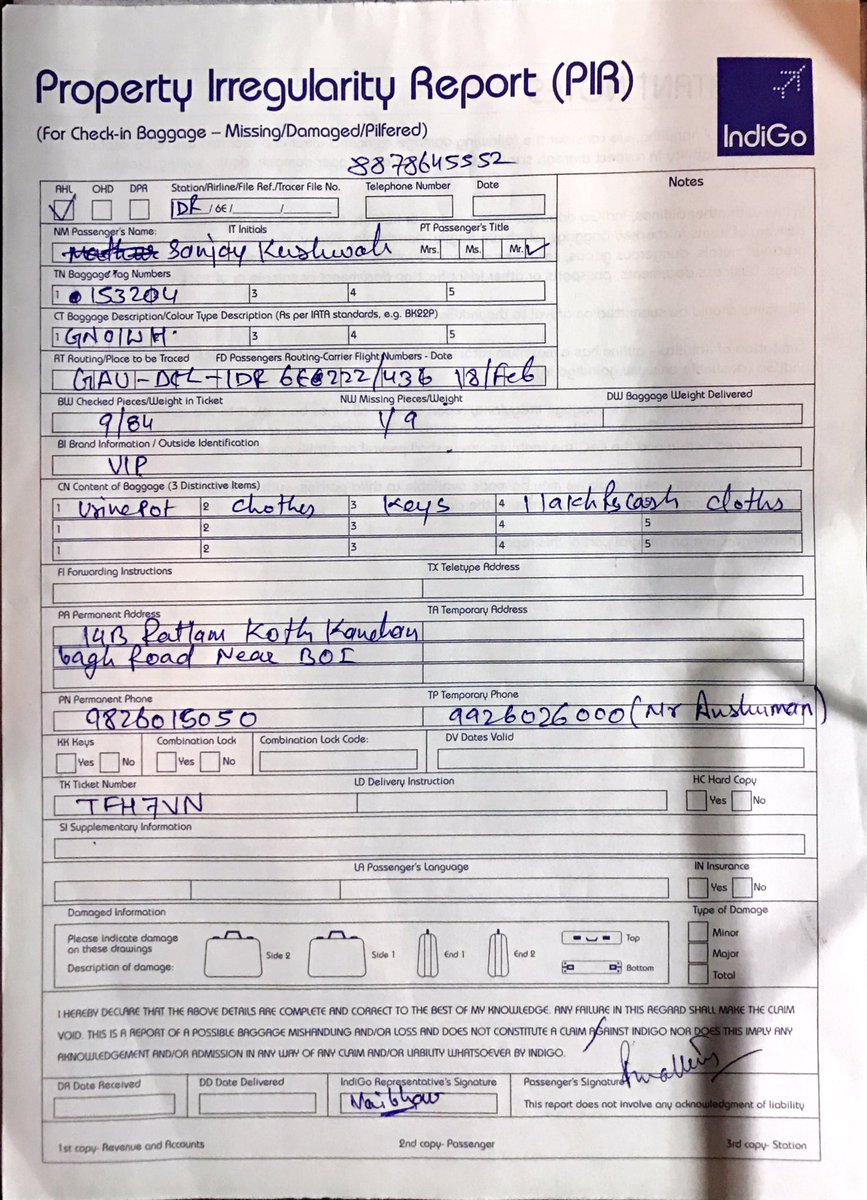 Property Irregularity Report (PIR)
IndiGo
(For Check-in Baggage – Missing/Damaged/Pilfered)
8878645552
AHL OHD DPR Station/Airline/File Ref./Tracer File No. Telephone Number Date Notes
IDR / 6E / / 
NM Passenger's Name: IT Initials PT Passenger's Title
Sanjay Kushwah Mrs. Ms. Mr.
TN Baggage Tag Numbers
1 0153204 3 4 5
CT Baggage Description/Colour Type Description (As per IATA standards, e.g. BK22P)
1 GN01WH. 3 4 5
RT Routing/Place to be Traced FD Passengers Routing-Carrier Flight Numbers - Date
GAU-DEL-IDR 6E 222/436 18/Feb
BW Checked Pieces/Weight in Ticket NW Missing Pieces/Weight DW Baggage Weight Delivered
9/84 1/9
BI Brand Information / Outside Identification
VIP
CN Content of Baggage (3 Distinctive Items)
1 Urinepot 2 Chothes 3 Keys 4 1 lakh Rs Cash cloths
1 2 3 4 5
1 2 3 4 5
FI Forwarding Instructions TX Teletype Address
PA Permanent Address TA Temporary Address
14B Ratlam Koth Kanchan
bagh Road Near BOI
PN Permanent Phone TP Temporary Phone
9826015050 9926026000 (Mr Anshuman)
KK Keys Combination Lock Combination Lock Code: DV Dates Valid
Yes No Yes No
TK Ticket Number LD Delivery Instruction HC Hard Copy
TFH7VN Yes No
SI Supplementary Information
LA Passenger's Language IN Insurance
Yes No
Damaged Information Type of Damage
Please indicate damage on these drawings Side 2 Side 1 End 1 End 2 Top Minor
Description of damage: Bottom Major
Total
I HEREBY DECLARE THAT THE ABOVE DETAILS ARE COMPLETE AND CORRECT TO THE BEST OF MY KNOWLEDGE. ANY FAILURE IN THIS REGARD SHALL MAKE THE CLAIM
VOID. THIS IS A REPORT OF A POSSIBLE BAGGAGE MISHANDLING AND/OR LOSS AND DOES NOT CONSTITUTE A CLAIM AGAINST INDIGO NOR DOES THIS IMPLY ANY
AKNOWLEDGEMENT AND/OR ADMISSION IN ANY WAY OF ANY CLAIM AND/OR LIABILITY WHATSOEVER BY INDIGO.
DR Date Received DD Date Delivered IndiGo Representative's Signature Passenger's Signature
Vaibhav This report does not involve any acknowledgment of liability
1st copy- Revenue and Accounts 2nd copy- Passenger 3rd copy- Station